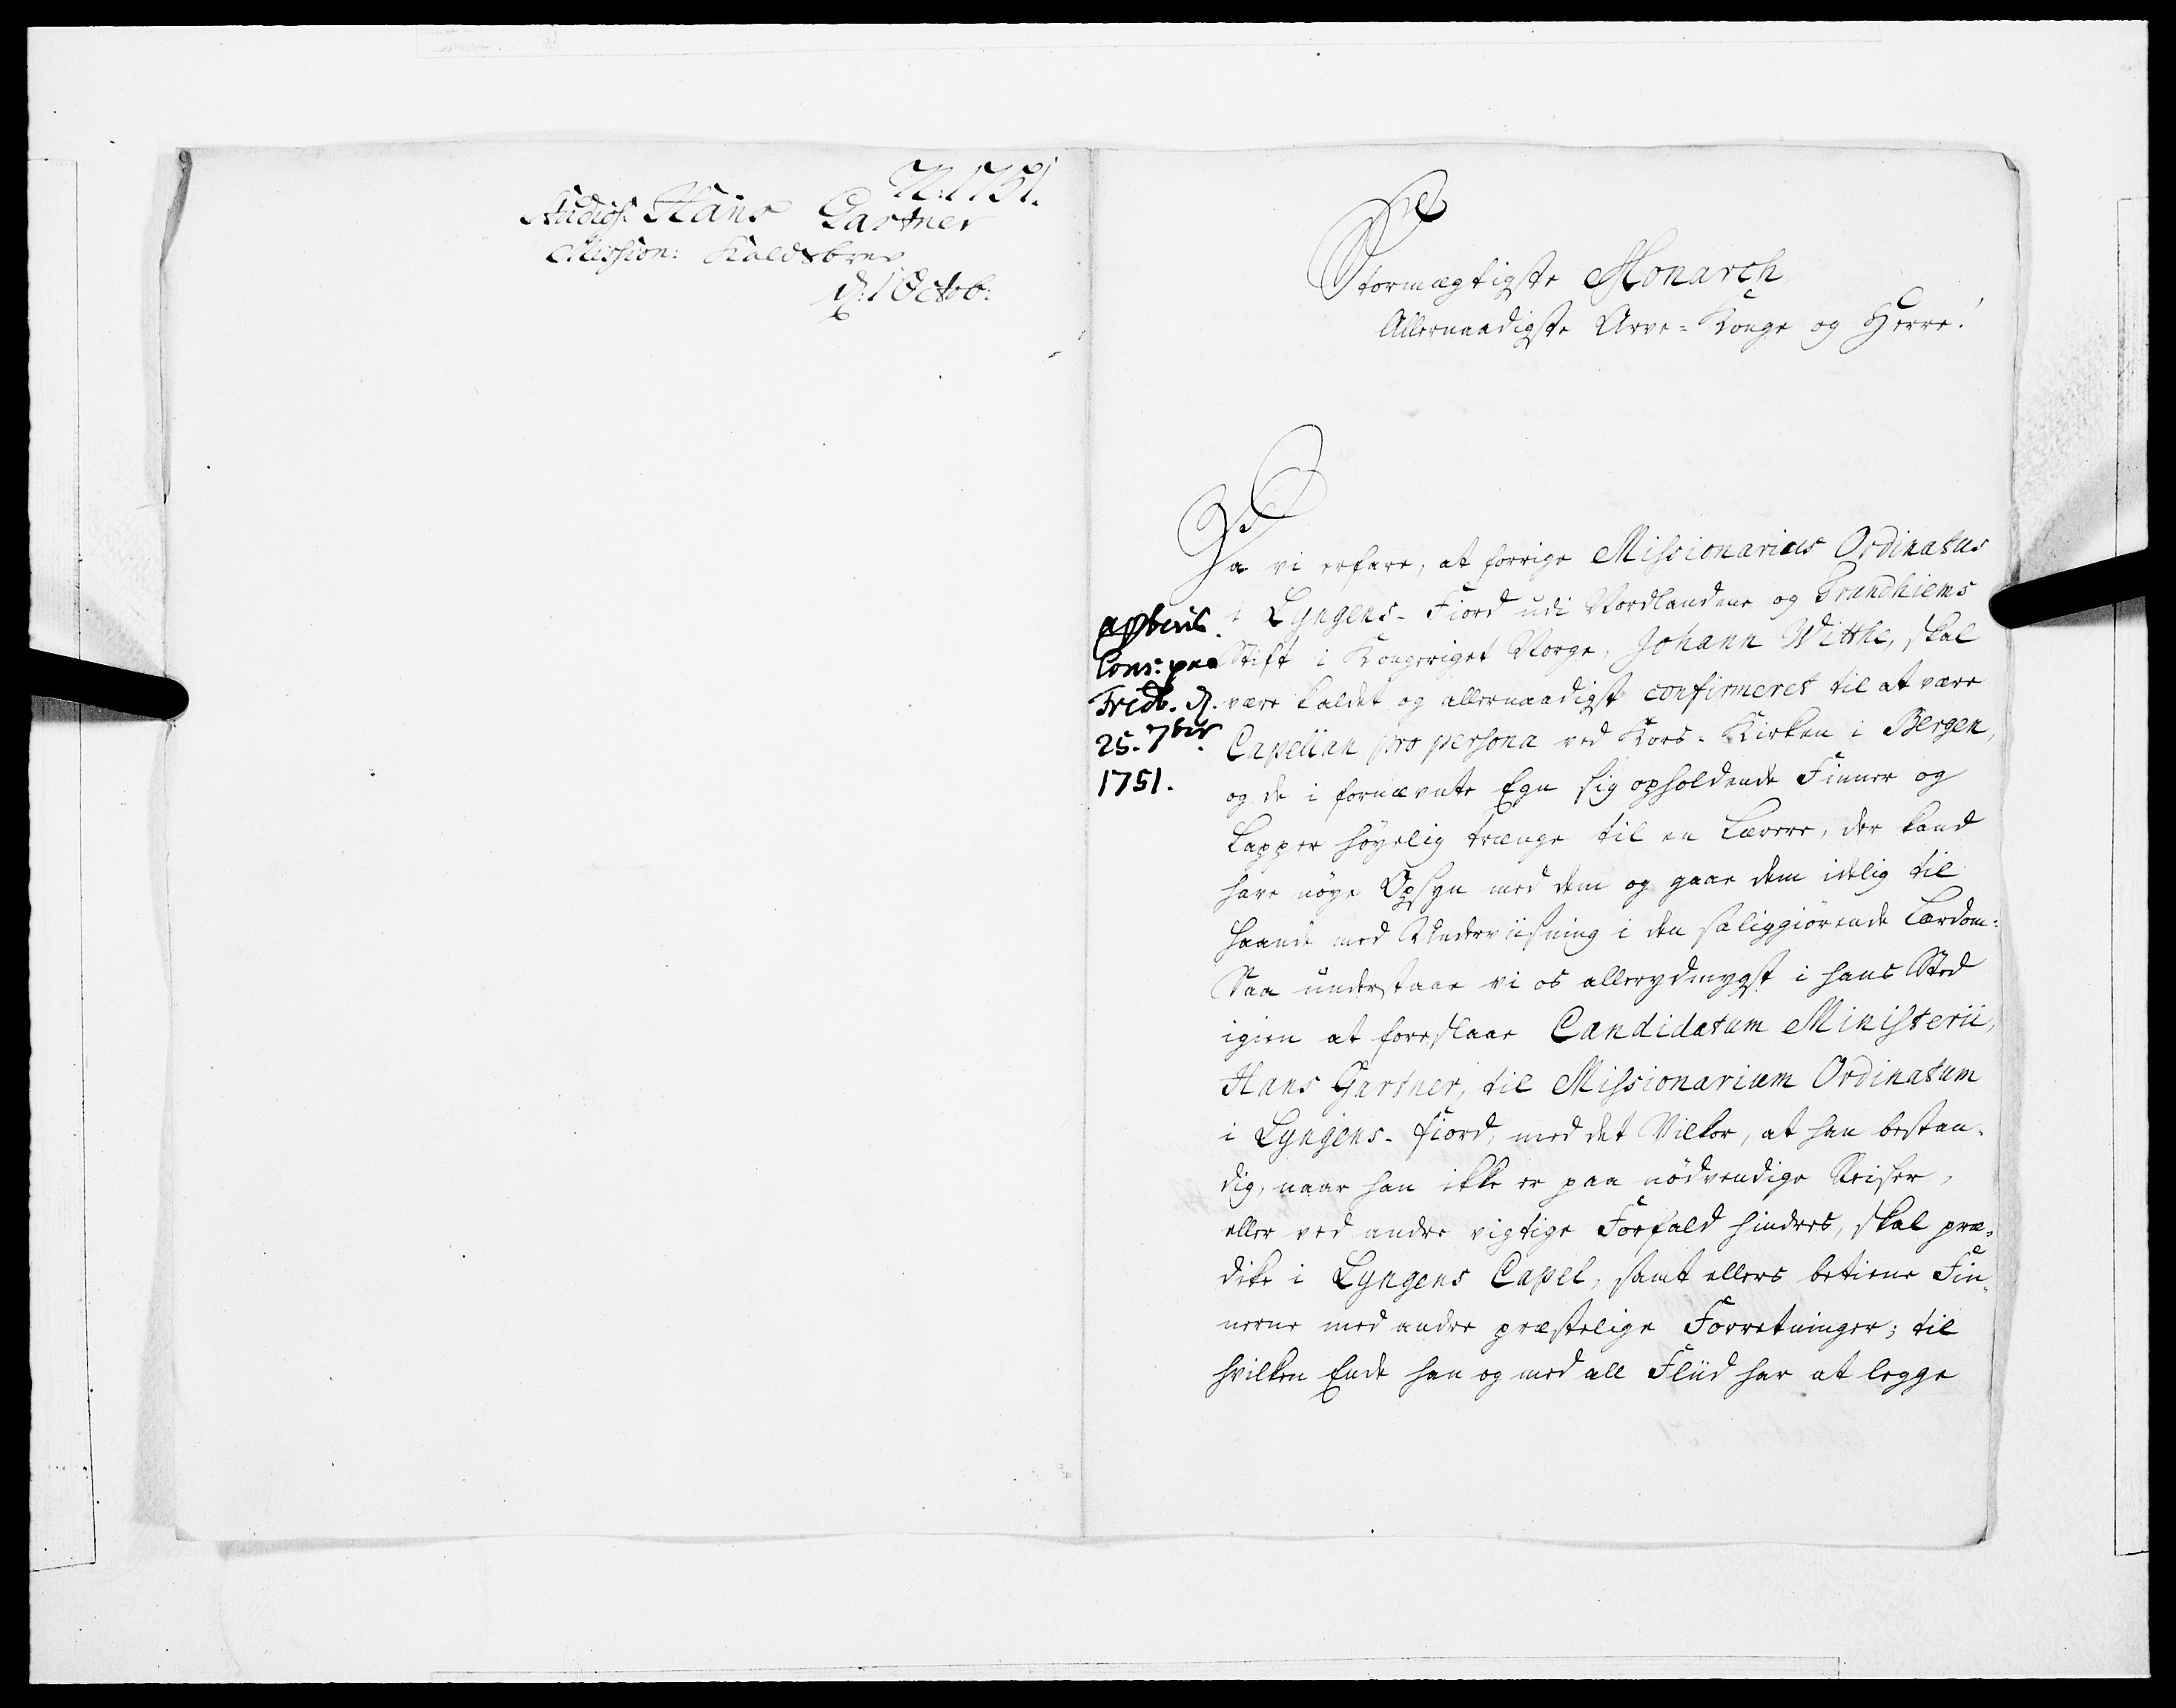 72: 1751.
Studios: Hans Gartner
Mission: Kaldsbrev
d: 1 Octob:
Stormægtigste Monarch,
Allernaadigste Arve-Konge og Herre!
Da vi erfare, at forrige Missionarius Ordinatus
i Lyngens-Fiord udi Nordlandene og Trundhiems
Stift i Kongeriget Norge, Johann Witthe, skal
være kaldet og allernaadigst confirmeret til at være
Capellan pro persona ved Kors-Kirken i Bergen,
og de i fornævnte Egn sig opholdende Finner og
Lapper høyelig trænge til en Lærere, der kand
have nøye Opsyn med dem og gaae dem idelig til
Haande med Underviisning i den saliggiørende Lærdom:
Saa understaae vi os allerydmygst i hans Sted
igien at foreslaae Candidatum Ministerii,
Hans Gartner, til Missionarium Ordinatum
i Lyngens-fiord, med det Vilkor, at han bestan-
dig, naar han ikke er paa nødvendige Reiser,
eller ved andre vigtige Forfald hindres, skal præ-
dike i Lyngens Capel, samt ellers betiene Fin-
nerne med andre præstelige Forretninger; til
hvilken Ende han og med all Fliid har at legge
apberet.
Cons: paa
Fridb. d.
25. 7br.
1751.